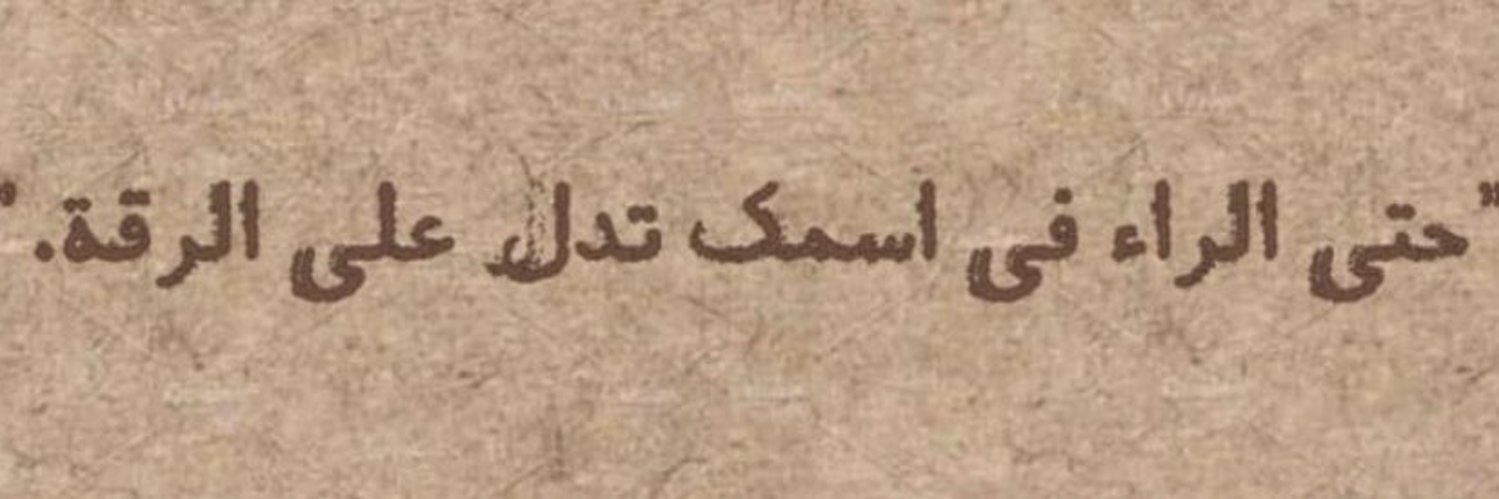 "حتى الراء فى اسمك تدل على الرقة."